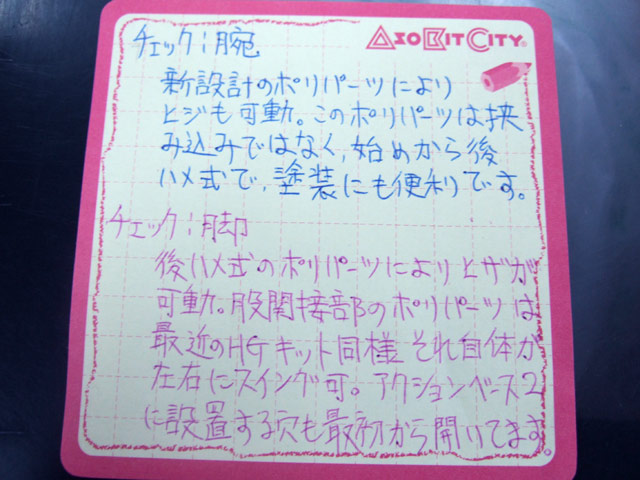 AsoBitCity
チェック:腕
新設計のポリパーツにより
ヒジも可動。このポリパーツは挟
み込みではなく、始めから後
ハメ式で、塗装にも便利です。
チェック:脚
後ハメ式のポリパーツによりヒザが
可動。股関接部のポリパーツは
最近のHGキット同様それ自体が
左右にスイング可。アクションベース2
に設置する穴も最初から開いてます。